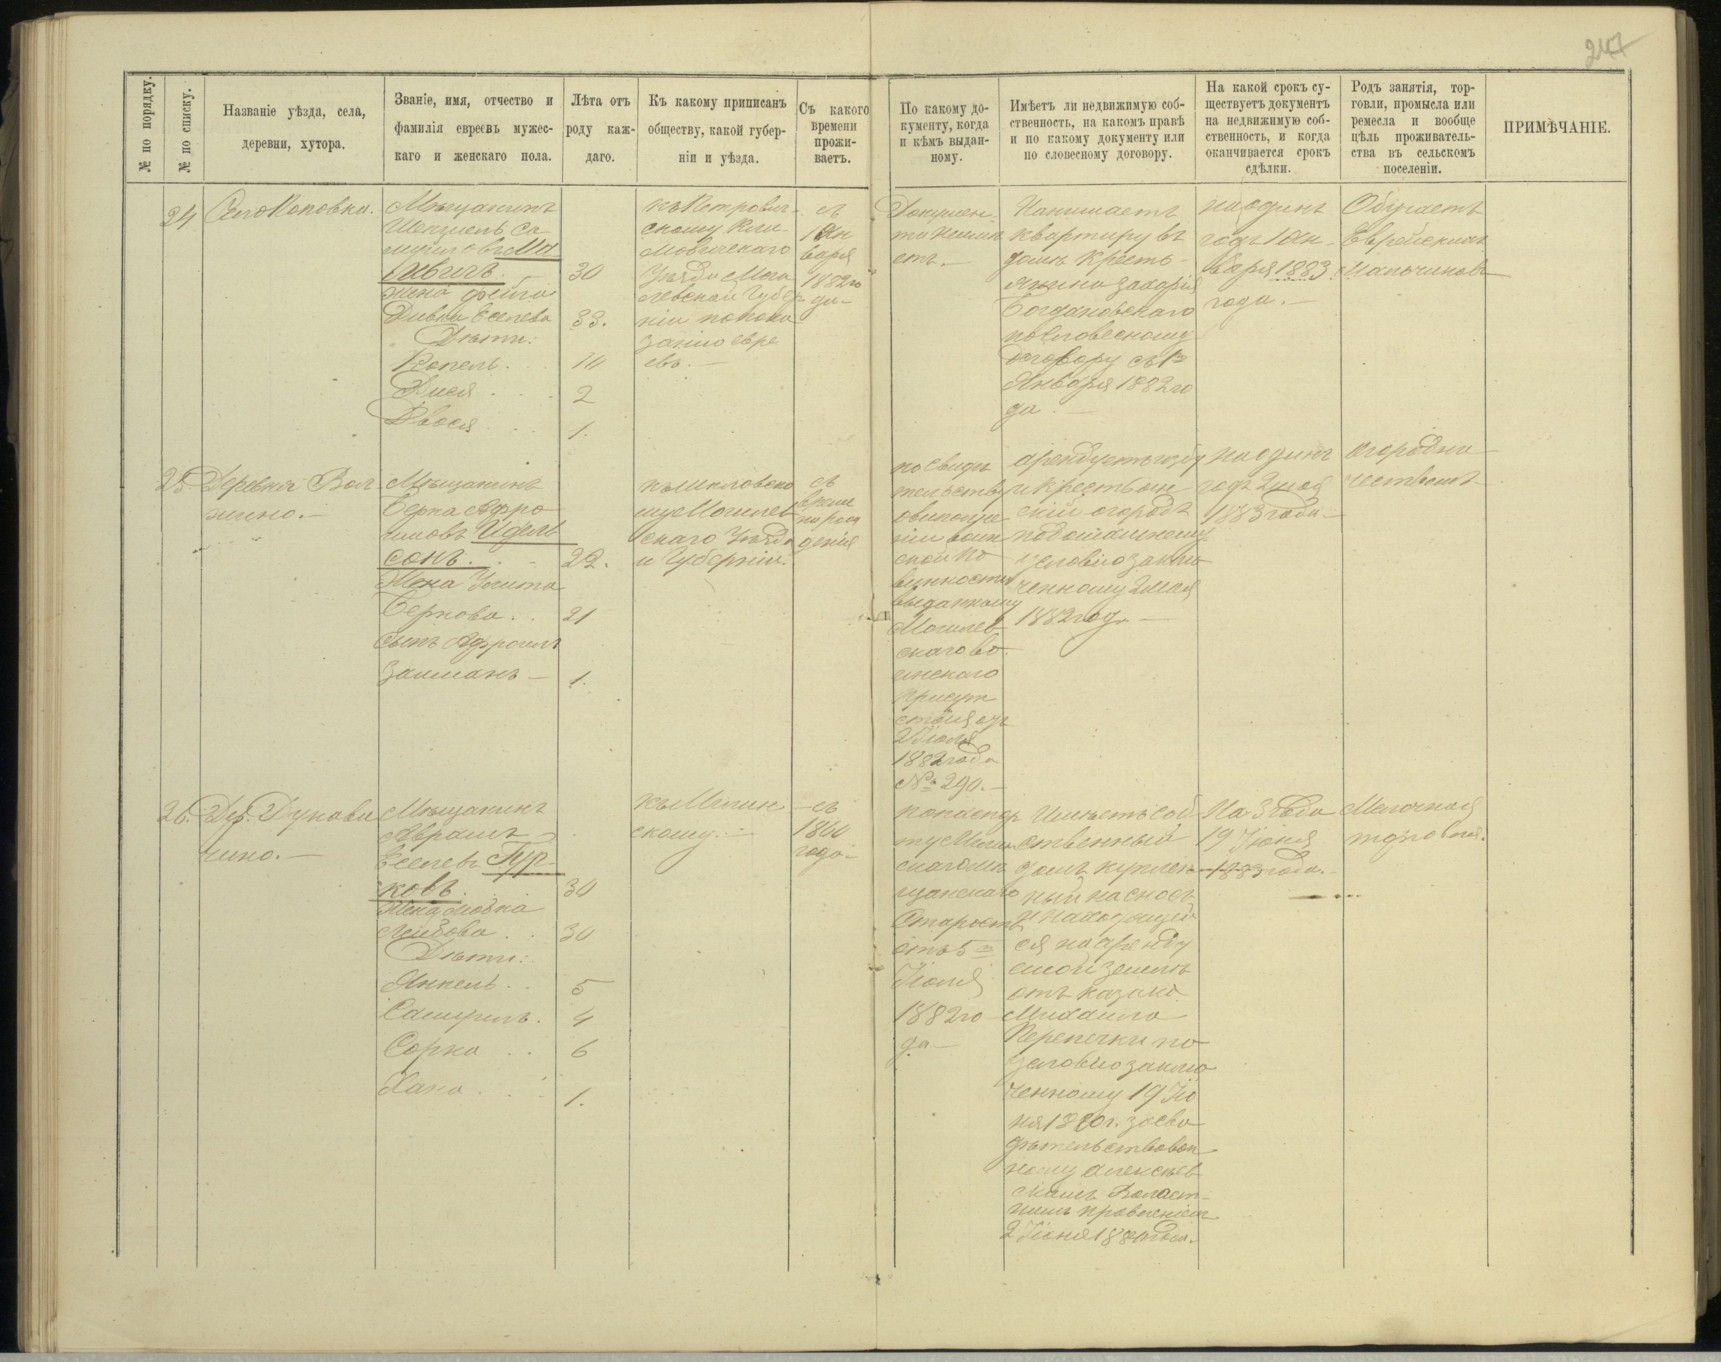 247
№ по порядку.
№ по списку.
Названіе уѣзда, села,
деревни, хутора.
Званіе, имя, отчество и
фамилія евреевъ мужес-
каго и женскаго пола.
Лѣта отъ
роду каж-
даго.
Къ какому приписанъ
обществу, какой губер-
ніи и уѣзда.
Съ какого
времени
прожи-
ваетъ.
По какому до-
кументу, когда
и кѣмъ выдан-
ному.
Имѣетъ ли недвижимую соб-
ственность, на какомъ правѣ
и по какому документу или
по словесному договору.
На какой срокъ су-
ществуетъ документъ
на недвижимую соб-
ственность, и когда
оканчивается срокъ
сдѣлки.
Родъ занятія, тор-
говли, промысла или
ремесла и вообще
цѣль проживатель-
ства въ сельскомъ
поселеніи.
ПРИМѢЧАНІЕ.
24
Село Поповка.
Мѣщанинъ
30
жена
33.
Дѣти:
Копель
10
2
Двося
1.
скому Кли-
мовичскаго
Уѣзда Моги
левской Губер
ніи по пока
занію евре
евъ.
съ
1 Ян
варя
1882 го
да
Докумен
та
Нанимаетъ
квартиру въ
домѣ кресть
янина Захарія
Богдановскаго
по словесному
договору съ 1го
Января 1882 го
да.
на одинъ
годъ 1 Ян-
варя 1883
года.
Обучаетъ
Еврейскихъ
мальчиковъ
25.
Деревня Вол
жино.
Мѣщанинъ
Берка Афро
имовъ Идель
сонъ.
22.
Жена
Беркова
21
сынъ Афроим
Залманъ
1.
му Могилев
скаго Уѣзда
и Губерніи.
съ
време
ни рож
денія
по свидѣ
тельству
о выполне
ніи воин
ской по
винности
выданному
Могилев
скаго во
инскаго
присут
ствія отъ
1882 года
№ 290.
арендуетъ избу
и крестьян
скій огородъ
по домашнему
условію заклю
ченному 2 мая
1882 году
на одинъ
годъ 2 мая
1883 года
огородни
чествомъ
26.
Дер. Дукави
чино.
Мѣщанинъ
Абрамъ
Еселевъ Тур-
ковъ.
30
Жена
Лейбова
30
Дѣти:
Янкель
5
Самуилъ
4
Сорка
6
Хана
1.
къ Мглин
скому.
съ
1860
года
по паспор
ту Мглин
скаго мѣ
щанскаго
Старосты
отъ 5го
Іюля
1882 го
да
Имѣетъ соб
ственный
домъ куплен
ный на сносъ
и находящій
ся на арендуе
мой землѣ
отъ казака
Михаила
Перепечки по
условію заклю
ченному 19 Ію
ня 1880 г. засви
дѣтельствован
ному Алексѣев
скимъ Волост-
нымъ правленіемъ
На 3 года
19 Іюня
1883 года.
Мелочная
торговля.